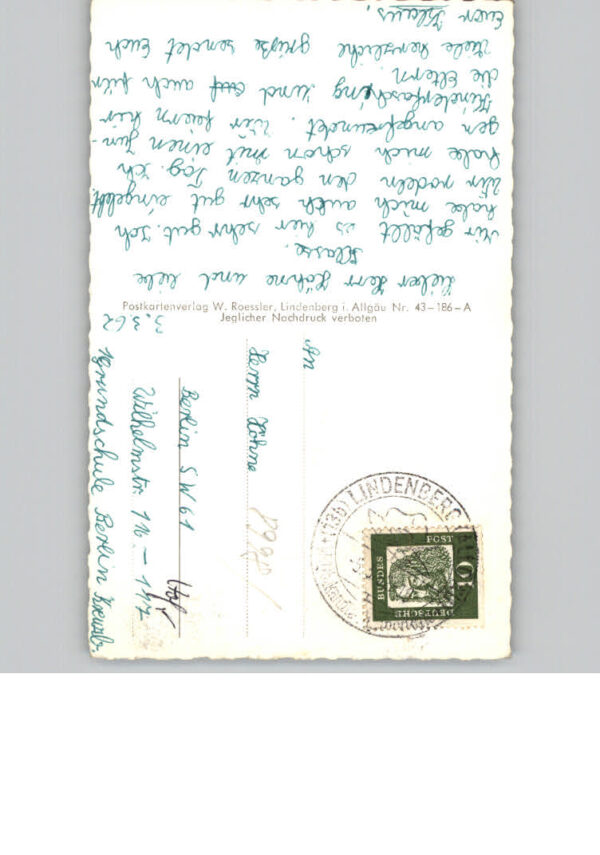 3.3.62
Lieber Herr Höhne und liebe
Klasse.
Mir gefällt es hier sehr gut. Ich
habe mich auch sehr gut eingelebt.
Wir rodeln den ganzen Tag. Ich
habe mich schon mit einen Jun-
gen angefreundet. Wir feiern hir
Kinderfasching und auch für
die Eltern.
Viele herzliche grüße sendet Euch
Euer Klaus.
Postkartenverlag W. Roessler, Lindenberg i. Allgäu Nr. 43-186-A
Jeglicher Nachdruck verboten
An
Herrn Höhne
Berlin SW 61
Wilhelmstr. 116-117
Grundschule Berlin Kreuzb.
(13b) LINDENBERG
DEUTSCHE
BUNDES
POST
10